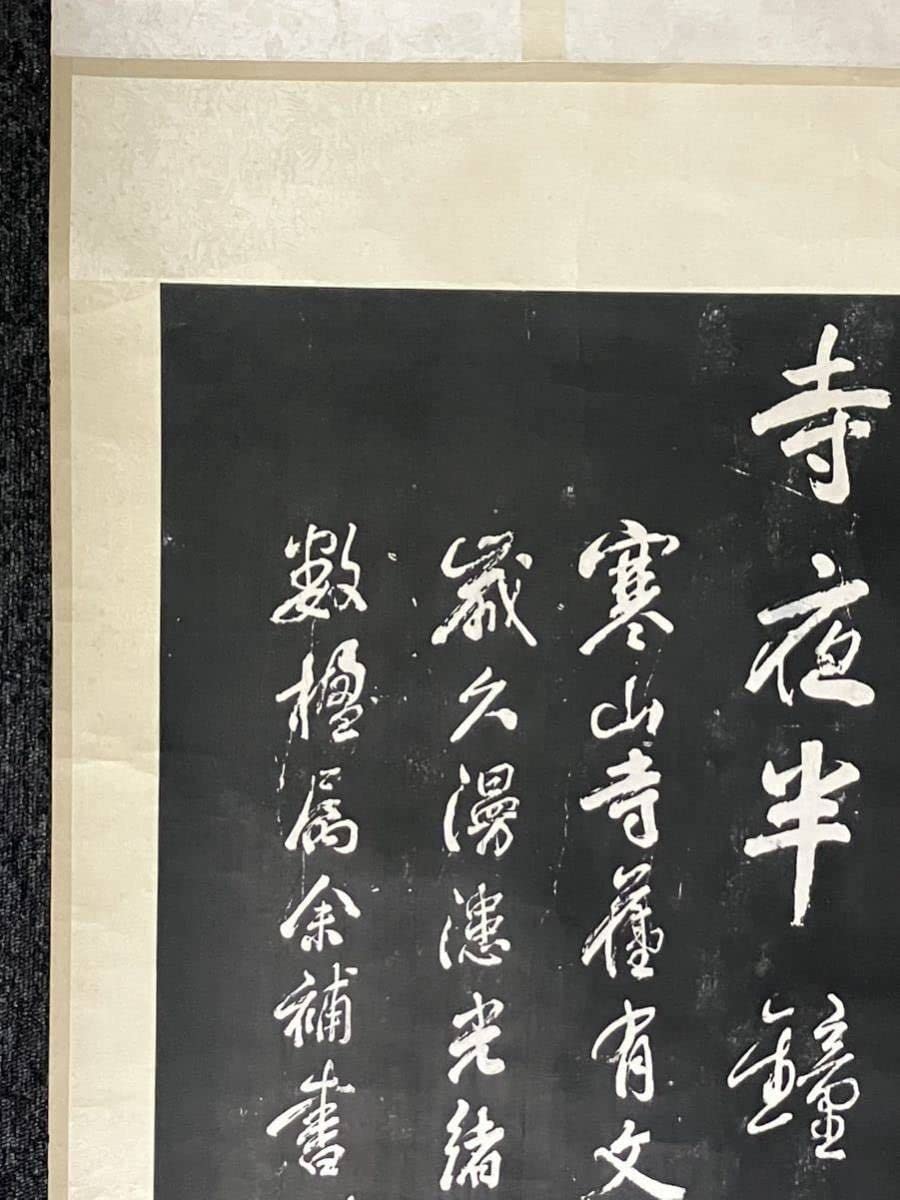 寺夜半鐘
寒山寺舊有文
歲久漫漶光緒
數楹属余補書